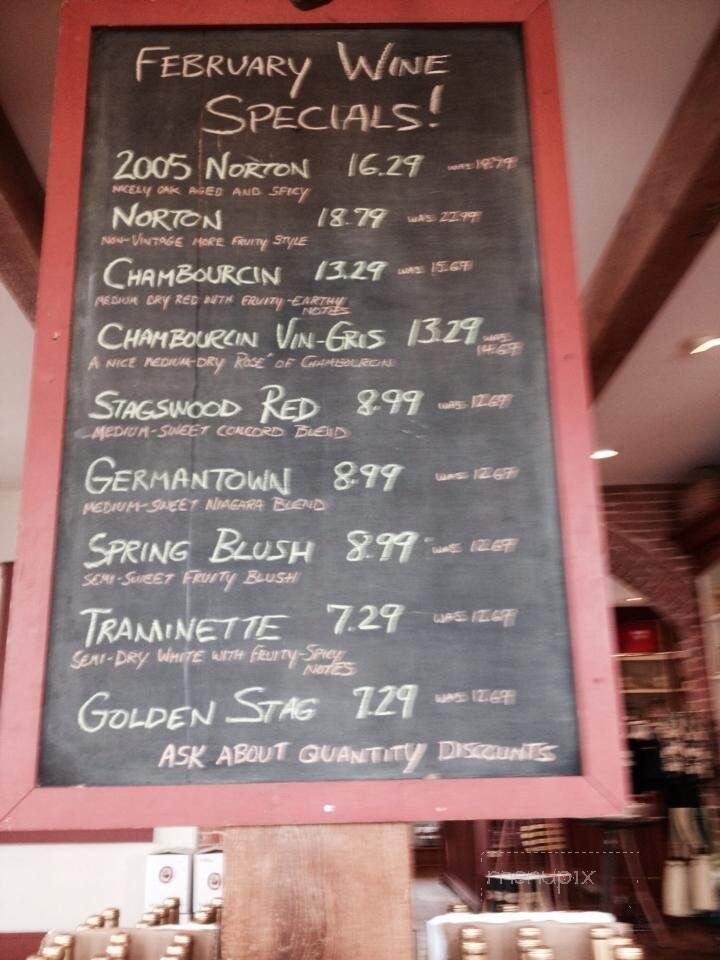 FEBRUARY WINE
SPECIALS!
2005 NORTON 16.29 WAS 19.79
NICELY OAK AGED AND SPICY
NORTON 18.79 WAS 22.99
NON-VINTAGE MORE FRUITY STYLE
CHAMBOURCIN 13.29 WAS 15.69
MEDIUM DRY RED WITH FRUITY-EARTHY
NOTES
CHAMBOURCIN VIN-GRIS 13.29 WAS
14.69
A NICE MEDIUM-DRY ROSE' OF CHAMBOURCIN
STAGSWOOD RED 8.99 WAS 12.69
MEDIUM-SWEET CONCORD BLEND
GERMANTOWN 8.99 WAS 12.69
MEDIUM-SWEET NIAGARA BLEND
SPRING BLUSH 8.99 WAS 12.69
SEMI-SWEET FRUITY BLUSH
TRAMINETTE 7.29 WAS 12.69
SEMI-DRY WHITE WITH FRUITY-SPICY
NOTES
GOLDEN STAG 7.29 WAS 12.69
ASK ABOUT QUANTITY DISCOUNTS
menupix